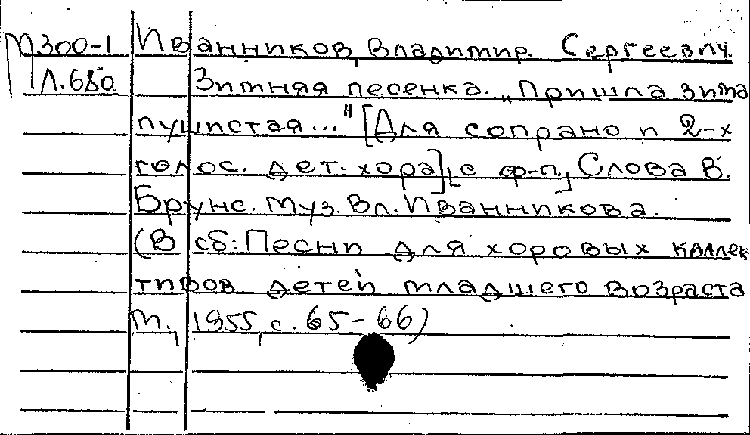 М300-1 Иванников, Владимир Сергеевич.
Л.680 Зимняя песенка. „Пришла зима
пушистая..." [Для сопрано и 2-х
голос. дет. хора] [с ф-п.] Слова В.
Брунс. Муз. Вл. Иванникова.
(В сб: Песни для хоровых коллек
тивов детей младшего возраста
М., 1955, с. 65-66)